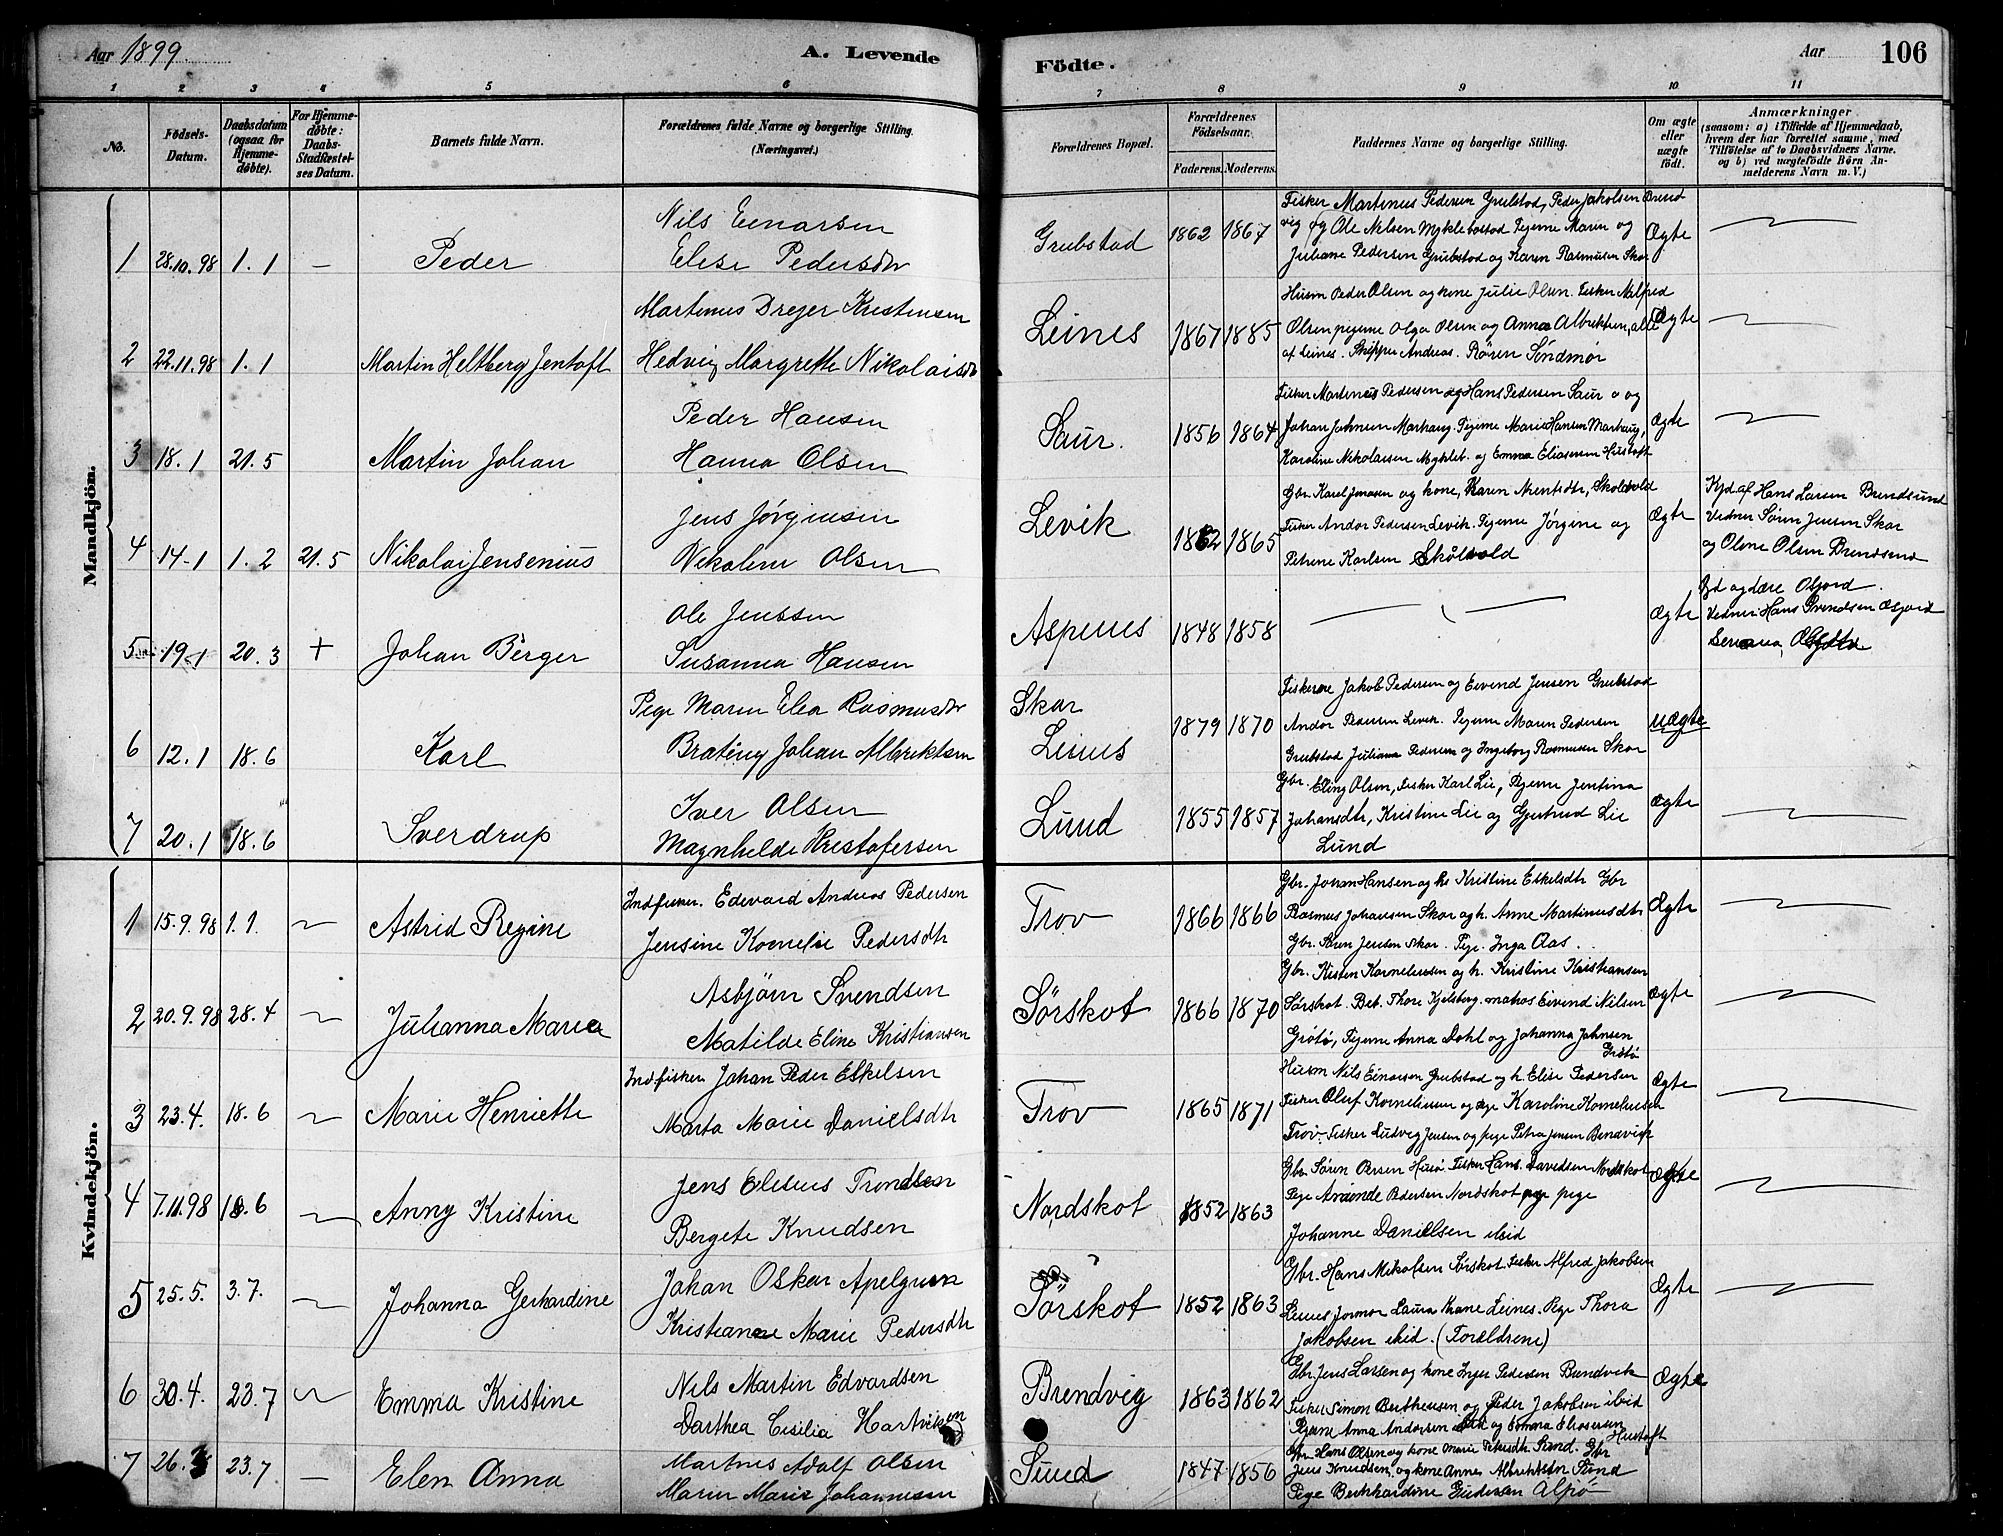 Aar 1899.
A. Levende
Födte.
Aar
106
1 2 3 4 5 6 7 8 9 10 11
No.
Födsels-Datum.
Daabsdatum (ogsaa for Hjemme-döbte).
For Hjemme-døbte: Daabs-Stadfæstel-ses Datum.
Barnets fulde Navn.
Forældrenes fulde Navne og borgerlige Stilling.
(Næringsvei.)
Forældrenes Bopæl.
Forældrenes Födselsaar.
Faderens. Moderens.
Faddernes Navne og borgerlige Stilling.
Om ægte eller uægte födt.
Anmærkninger
(saasom: a) i Tilfælde af Hjemmedaab, hvem der har forrettet samme, med Tilföielse af to Daabsvidners Navne. og b) ved uægtefödte Börn An-melderens Navn m. V.)
Mandkjön.
Nils Einarsen
1 28.10.98 1.1 — Peder Elise Pedersdtr
Grubstad 1862 1867
Fisker Martinus Pedersen Grubstad, Peder Jakobsen
vig og Ole Nilsen Myklebostad Pigerne Maren og
Juliane Pedersen Grubstad og Karen Rasmusen Skar
Ægte
Martinus Dreyer Kristensen
2 22.11.98 1.1 Martin Heltberg Jentoft Hedvig Margrethe Nikolaisdtr
Leines 1867 1885
Husm Peder Olsen og kone Julie Olsen. Fisker Alfred
Olsen pigerne Olga Olsen og Anna Albriktsen, alle
af Leines. Skipper Andreas Røren Søndmør
Ægte
Peder Hansen
3 18.1 21.5 Martin Johan Hanna Olsen
Saur. 1856 1864
Fisker Martinus Pedersen og Hans Pedersen Saur og
Johan Johnsen Marhaug. Pigerne Marie Hansen Marhaug,
Karoline Nikolaisen Myklеb. og Emma Eliassen Hustoft
Ægte
Jens Jørginsen
4 14.1 1.2 21.5 Nikolai Jensenius Nikoline Olsen
Levik 1862 1865
Gbr. Karel Jonasen og kone, Karen Arentsdtr, Skotsvold
Fisker Andor Pedersen Levik. Pigerne Jørgine og
Petrine Karlsen Skotsvold
Ægte
Hjd. af Hans Larsen Brendsund
Vidner Søren Jensen Skar
og Oline Olsen Brendsund
Ole Jenssen
5 19.1 20.3 + Johan Berger Susanna Hansen
Aspenes 1848 1858
Ægte
Vidner Hans Svendsen Åsjord
Pige Maren Elea Rasmusdtr
6 12.1 18.6 Karl Johan Albriktsen
Skar
Leines
1879 1870
Fiskerne Jakob Pedersen og Eivind Jensen Grubstad
Andor Pedersen Levik. Pigerne Maren Pedersen
Grubstad Juliana Pedersen og Ingeborg Rasmusen Skar
uægte
Iver Olsen
7 20.1 18.6 Sverdrup Magnhilde Kristofersen
Lund 1855 1857
Gbr. Eling Olsen, Fisker Karl Lie, Pigerne Jentina
Johansdtr, Kristine Lie og Gjertrud Lie
Lund
Ægte
Kvindekjön.
Indfisker. Edevard Andreas Pedersen
1 15.9.98 1.1. Astrid Regine Jensine Kornelie Pedersdtr
Trov 1866 1866
Gbr. Johan Hansen og h. Kristine Eskelsdtr Gbr
Rasmus Johansen Skar og h. Anne Martinusdtr
Gbr. Søren Jensen Skar. Pige. Inga Aas.
Ægte
Asbjørn Svendsen
2 20.9.98 28.4 Julianna Maria Matilde Eline Kristiansen
Sørskot 1866 1870
Gbr. Kristen Korneliussen og h. Kristine Kristiansen
Sørskot. Thore Kjelsberg. matros Eivind Nilsen
Grøtø, Pigerne Anna Dahl og Johanna Johnsen
Grøtø
Ægte
Indfisker Johan Peder Eskelsen
3 23.4. 18.6 Marie Henriette Marta Marie Danielsdtr
Trov 1865 1871
Husm Nils Einarsen Grubstad og h. Elise Pedersen
Fisker Oluf Kornelius​sen og pige Karoline Korneliussen
Trov. Fisker Ludvig Jensen og pige Petra Jensen Brendvick
Ægte
Jens Elesius Trondsen
4 7.11.98 18.6 Anny Kristine Bergete Knudsen
Nordskot 1852 1863
Gbr Søren Husø. Fisker Hans Davidsen Nordskot
Pige Pedersen Nordskot pige
Johanne Danielsen ibid
Ægte
Johan Oskar Apelgren
5 25.5. 3.7. Johanna Gerhardine Kristiane Marie Pedersdtr
Sørskot 1852 1863
Gbr. Hans Mikalsen Sørskot Fisker Alfred Jakobsen
Leines Jormor Laura Krane Leines. Pige Thora
Jakobsen ibid. (Forældrene)
Ægte
Nils Martin Edvardsen
6 30.4. 23.7 Emma Kristine Darthea Cesilia Hartviksen
Brendvig 1863 1862
Gbr Jens Larsen og kone Inger Pedersen Brendvik
Fisker Simon Bertheusen og Peder Jakobsen ibid
Pigerne Anna Andersen og Emma Eliassen
Hustoft
Ægte
Martines Adolf Olsen
7 26. 23.7. — Elen Anna Maren Marie Johannesen
Sund 1847 1856
Gbr. Hans Olsen og kone Marie Petersdtr Sund. Gbr
Jens Knudsen og kone Anne Albriktsdtr Sund
Pige Bernhardine